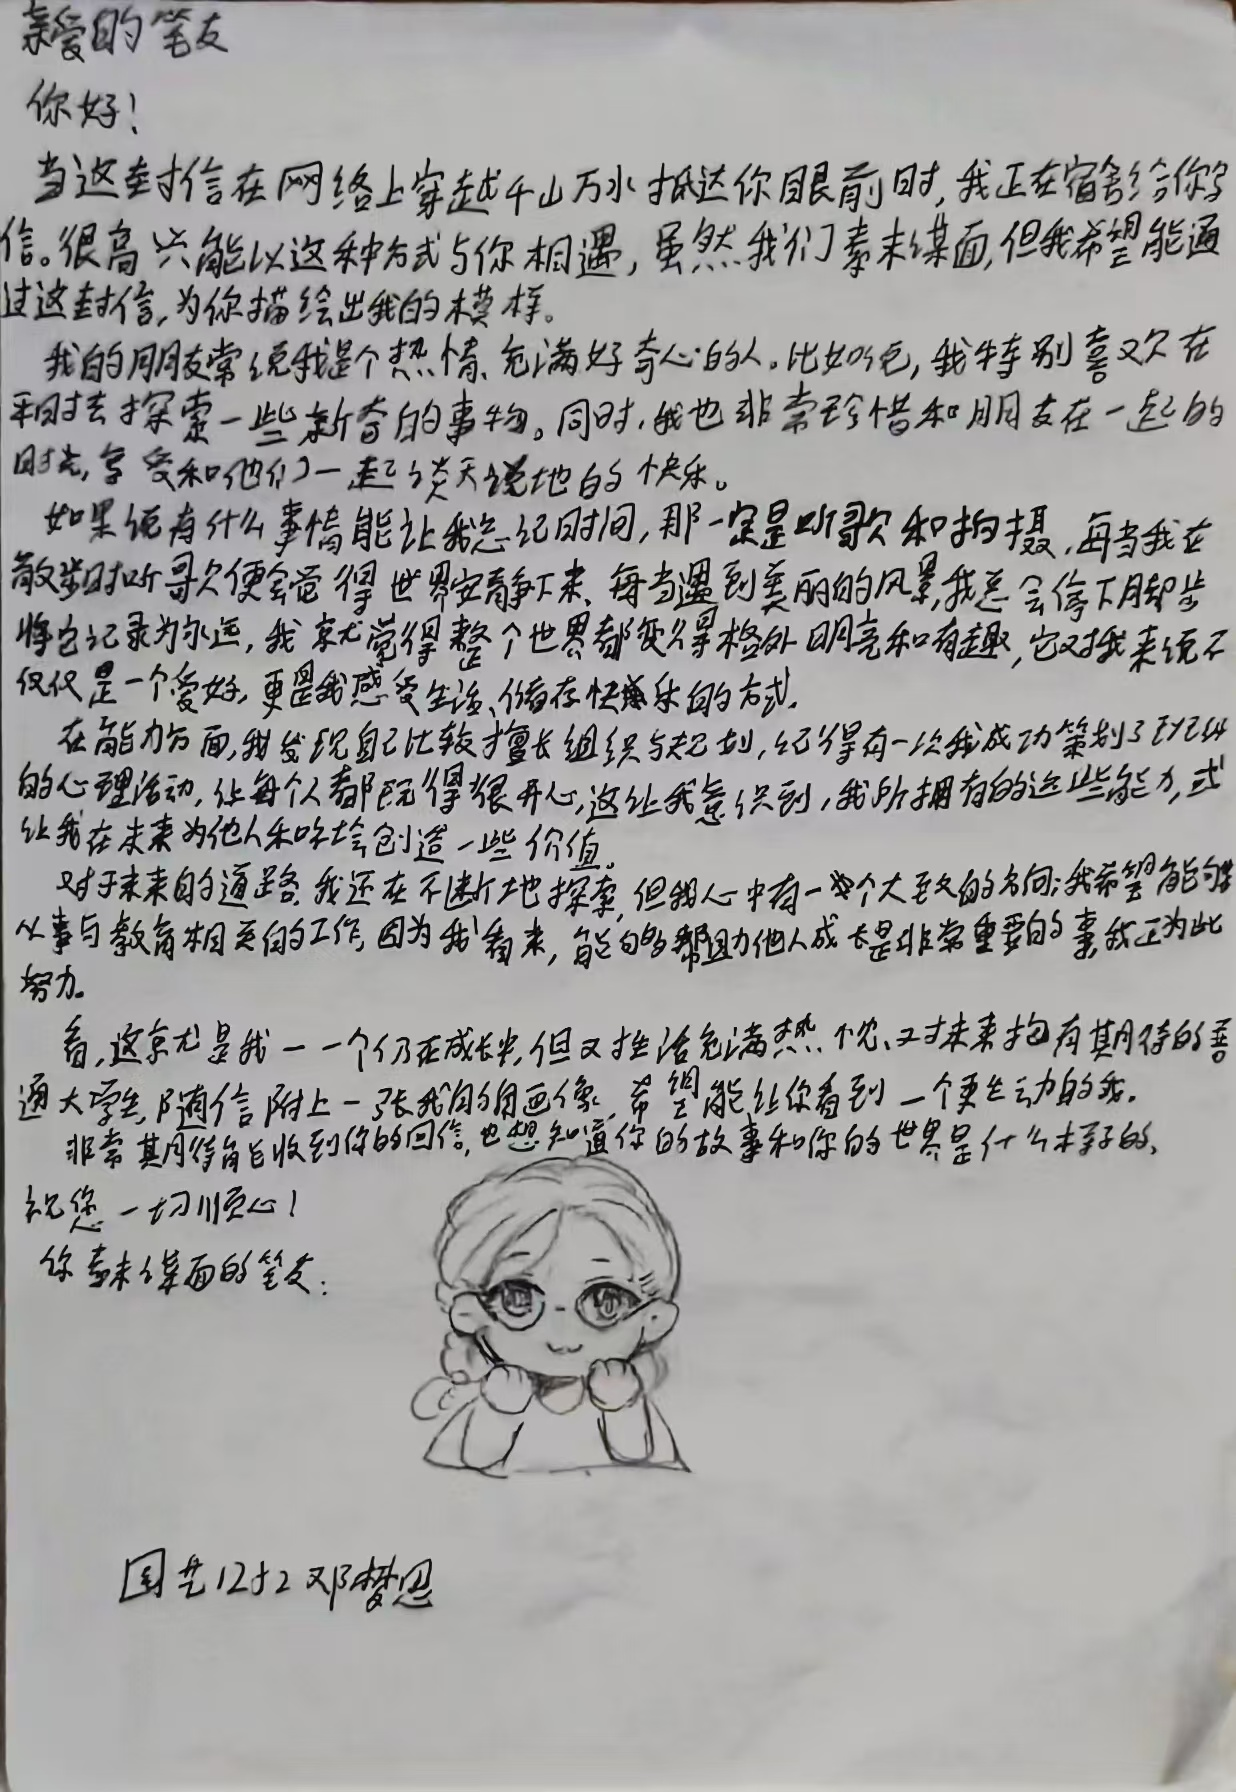 亲爱的笔友
你好！
当这封信在网络上穿越千山万水抵达你眼前时，我正在宿舍给你写
信。很高兴能以这种方式与你相遇，虽然我们素未谋面，但我希望能通
过这封信，为你描绘出我的模样。
我的朋友常说我是个热情、充满好奇心的人。比如说，我特别喜欢在
平时去探索一些新奇的事物。同时，我也非常珍惜和朋友在一起的
时光，享受和他们一起谈天说地的快乐。
如果说有什么事情能让我忘记时间，那一定是听歌和拍摄，每当我在
散步时听歌便会觉得世界安静下来、每当遇到美丽的风景，我总会停下脚步
将它记录为永远，我就觉得整个世界都变得格外明亮和有趣，它对我来说不
仅仅是一个爱好，更是我感受生活、储存快乐的方式。
在能力方面，我发现自己比较擅长组织与规划，记得有一次我成功策划了
的心理活动，让每个人都玩得很开心，这让我意识到，我所拥有的这些能力，或
让我在未来为他人和 创造一些价值。
对于未来的道路，我还在不断地探索，但我心中有一个大致的方向：我希望能够
从事与教育相关的工作，因为我看来，能够帮助他人成长是非常重要的事，我正为此
努力。
看，这就是我一一个仍在成长中，但对生活充满热忱、对未来抱有期待的普
通大学生，随信附上一张我的自画像，希望能让你看到一个更生动的我。
非常期待能收到你的回信，也想知道你的故事和你的世界是什么样子的、
祝您一切顺心！
你素未谋面的笔友：
园艺1252 邓梦思